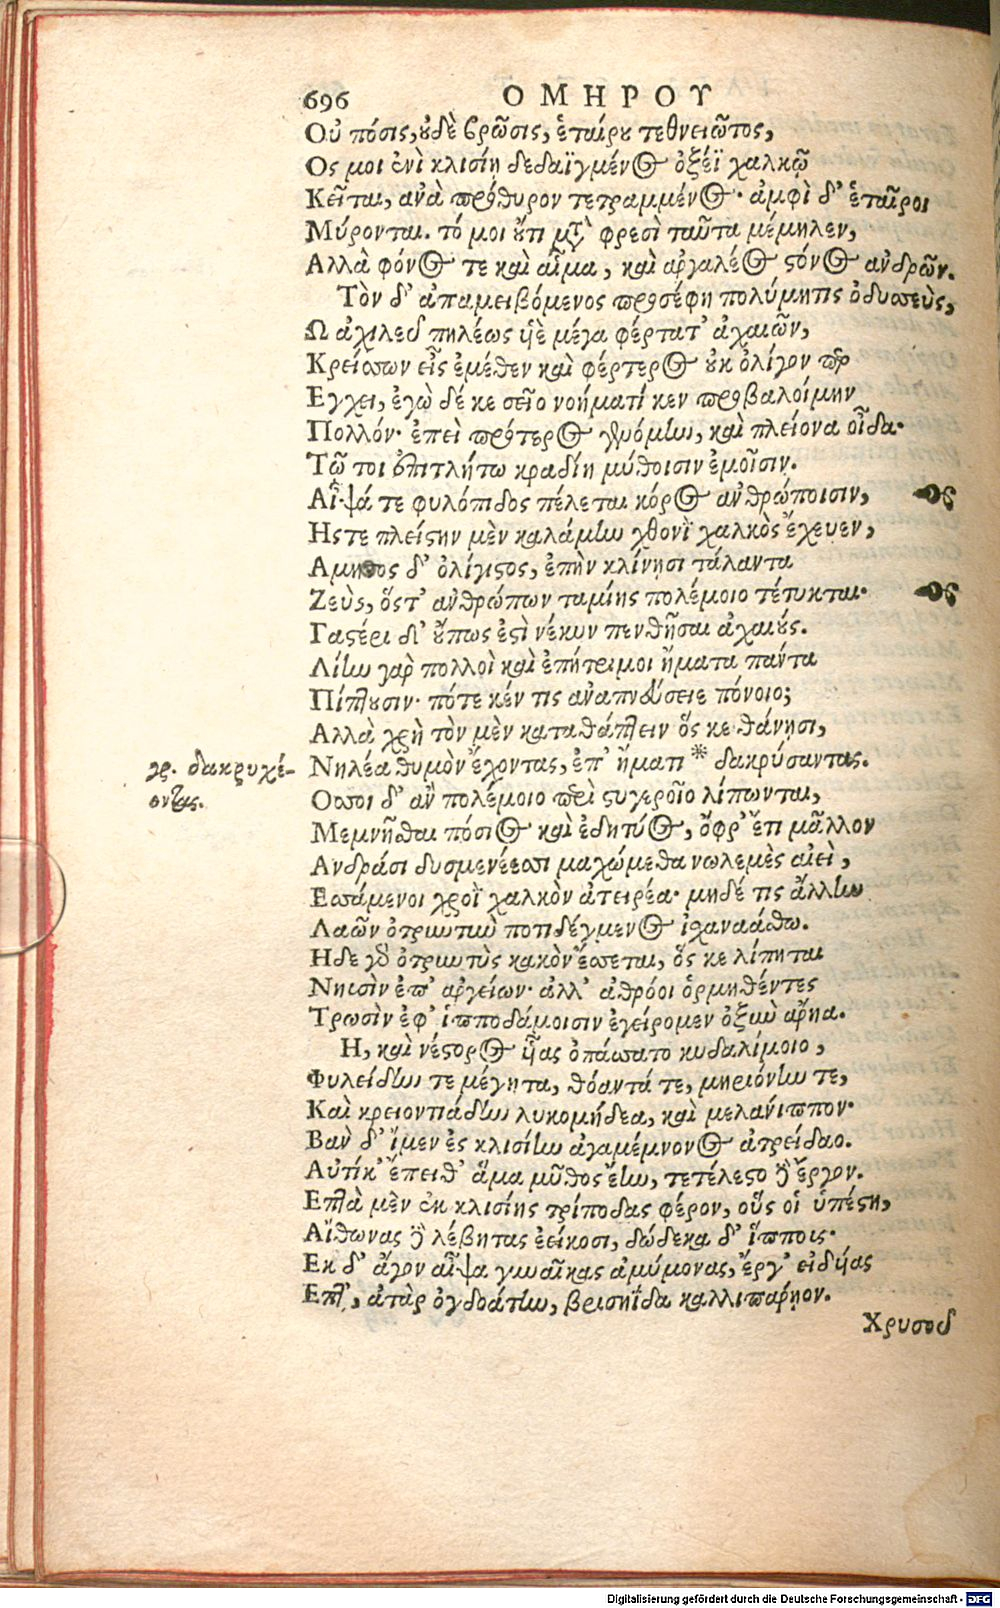 696 ΟΜΗΡΟΥ
Οὐ πόσις, οὐδὲ βρῶσις, ἑταίρου τεθνειῶτος,
Ος μοι ἐνὶ κλισίῃ δεδαϊγμένος ὀξέϊ χαλκῷ
Κεῖται, ἀνὰ πρόθυρον τετραμμένος· ἀμφὶ δ' ἑταῖροι
Μύρονται. τό μοι οὔτι μετὰ φρεσὶ ταῦτα μέμηλεν,
Αλλὰ φόνος τε καὶ αἷμα, καὶ ἀργαλέος στόνος ἀνδρῶν.
Τὸν δ' ἀπαμειβόμενος προσέφη πολύμητις ὀδυσσεὺς,
Ω ἀχιλεῦ πηλέως υἱὲ μέγα φέρτατ' ἀχαιῶν,
Κρείσσων εἷς ἐμέθεν καὶ φέρτερος οὐκ ὀλίγον περ
Εγχει, ἐγὼ δέ κε σεῖο νοήματί κεν προβαλοίμην
Πολλόν· ἐπεὶ πρότερος γενόμην, καὶ πλείονα οἶδα·
Τῷ τοι ἐπιτλήτω κραδίη μύθοισιν ἐμοῖσιν.
Αἶψά τε φυλόπιδος πέλεται κόρος ἀνθρώποισιν,
Ηςτε πλείστην μὲν καλάμην χθονὶ χαλκὸς ἔχευεν,
Αμητος δ' ὀλίγιστος, ἐπὴν κλίνῃσι τάλαντα
Ζεὺς, ὅστ' ἀνθρώπων ταμίης πολέμοιο τέτυκται·
Γαστέρι δ' οὔπως ἐστὶ νέκυν πενθῆσαι ἀχαιούς.
Λίην γὰρ πολλοὶ καὶ ἐπήτριμοι ἤματα πάντα
Πίπτουσιν· πότε κέν τις ἀναπνεύσειε πόνοιο;
Αλλὰ χρὴ τὸν μὲν καταθάπτειν ὅς κε θάνῃσι,
Νηλέα θυμὸν ἔχοντας, ἐπ' ἤματι * δακρύσαντας.
γρ. δακρυχέοντας.
Οσσοι δ' ἂν πολέμοιο περὶ στυγεροῖο λίπωνται,
Μεμνῆσθαι πόσιος καὶ ἐδητύος, ὄφρ' ἔτι μᾶλλον
Ανδράσι δυσμενέεσσι μαχώμεθα νωλεμὲς αἰεὶ,
Εσσάμενοι χροῒ χαλκὸν ἀτειρέα· μηδέ τις ἄλλην
Λαῶν ὀτρυντὺν ποτιδέγμενος ἰχαναάσθω.
Ηδε γὰρ ὀτρυντὺς κακὸν ἔσσεται, ὅς κε λίπηται
Νηυσὶν ἐπ' ἀργείων· ἀλλ' ἀθρόοι ὁρμηθέντες
Τρωσὶν ἐφ' ἱπποδάμοισιν ἐγείρομεν ὀξὺν ἄρηα.
Η, καὶ νέστορος υἷας ὀπάσσατο κυδαλίμοιο,
Φυλείδην τε μέγητα, θόαντά τε, μηριόνην τε,
Καὶ κρειοντιάδην λυκομήδεα, καὶ μελάνιππον·
Βὰν δ' ἴμεν ἐς κλισίην ἀγαμέμνονος ἀτρείδαο.
Αὐτίκ' ἔπειθ' ἅμα μῦθος ἔην, τετέλεστο δὲ ἔργον.
Επτὰ μὲν ἐκ κλισίης τρίποδας φέρον, οὕς οἱ ὑπέστη,
Αἴθωνας δὲ λέβητας ἐείκοσι, δώδεκα δ' ἵππους·
Εκ δ' ἄγον αἶψα γυναῖκας ἀμύμονας, ἔργ' εἰδυίας
Επτ', ἀτὰρ ὀγδοάτην, βρισηΐδα καλλιπάρῃον.
Χρυσοῦ
Digitalisierung gefördert durch die Deutsche Forschungsgemeinschaft - DFG